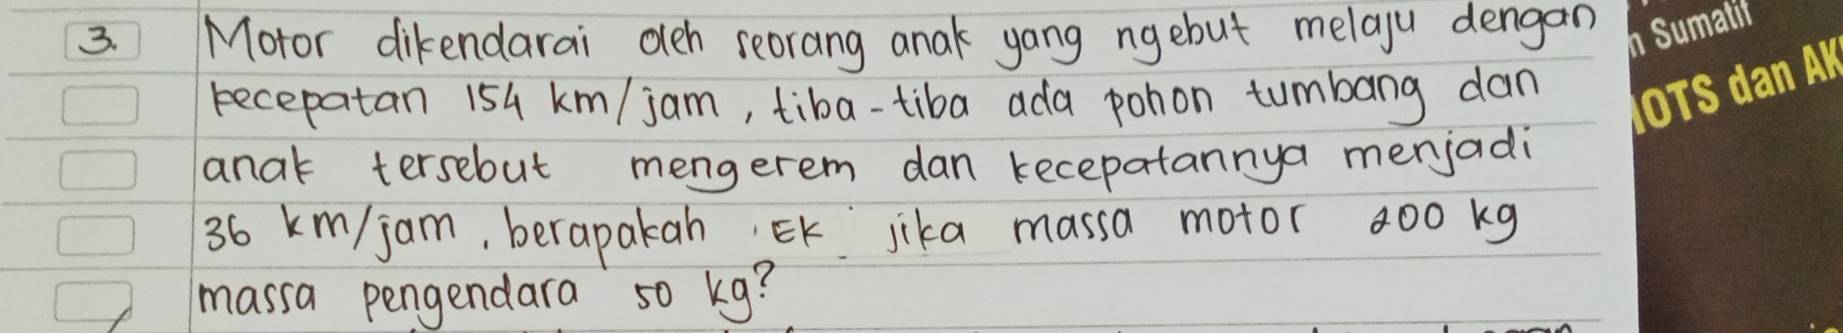 3. Motor dikendarai oleh seorang anak yang ngebut melaju dengan
kecepatan 154 km/jam, tiba-tiba ada pohon tumbang dan
anak tersebut mengerem dan kecepatannya menjadi
36 km/jam, berapakah EK jika massa motor 200 kg
massa pengendara 50 kg?
n Sumatif
HOTS dan AK